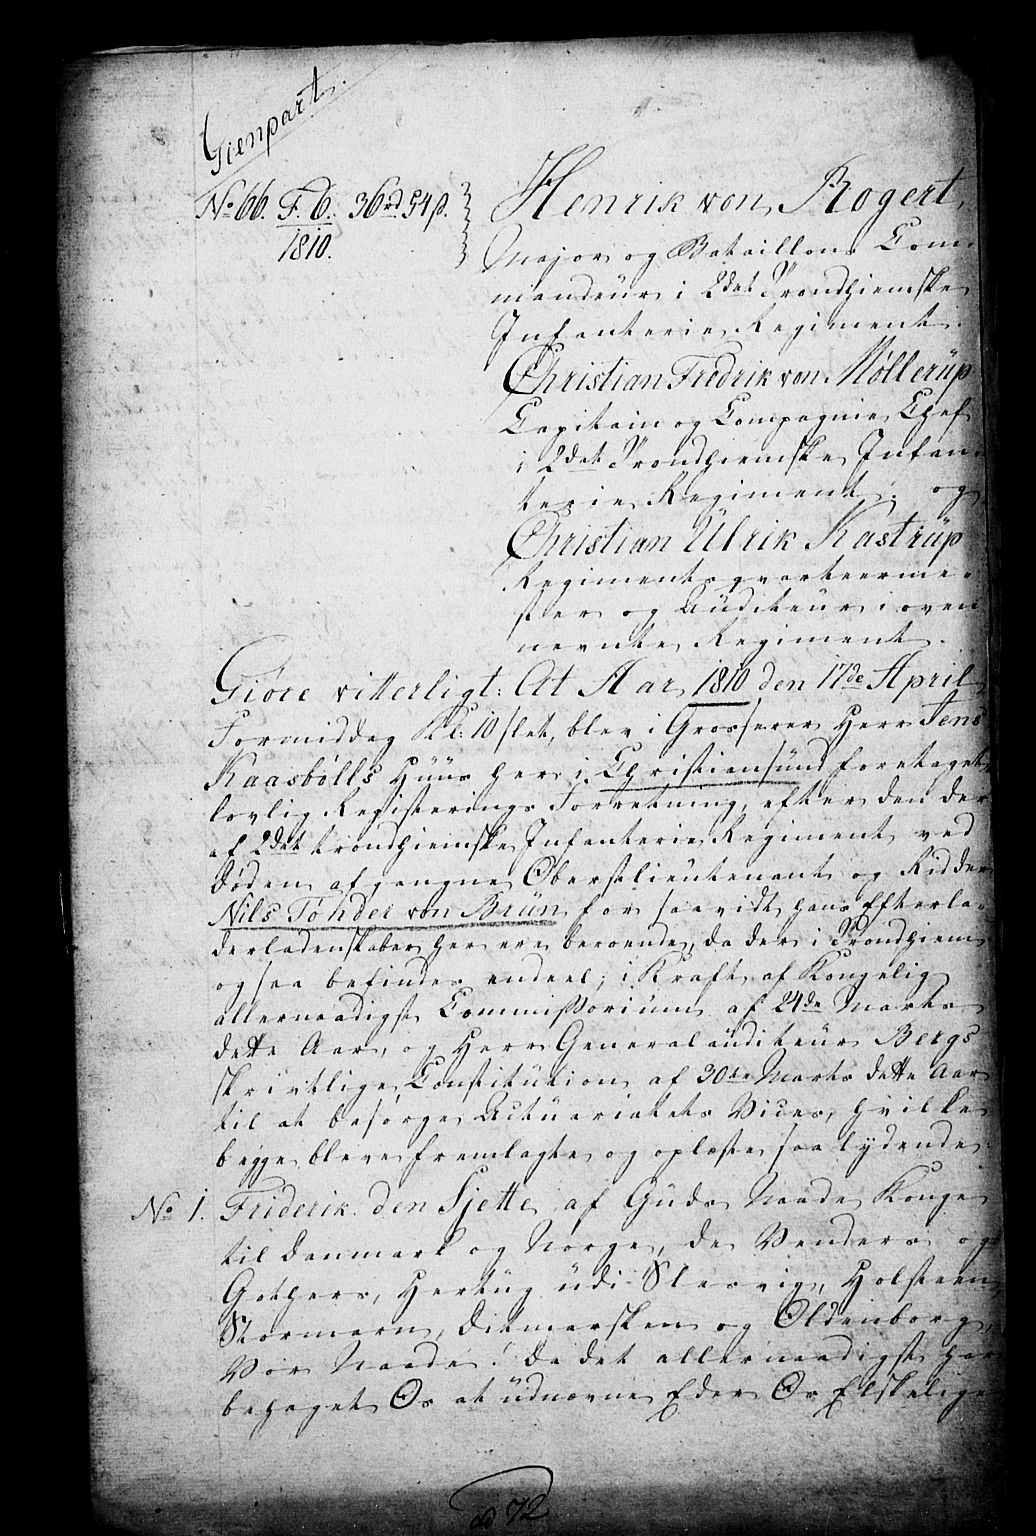 Gienpart.
No 66. F. 6. 36 rd 54 s.
1810.
Henrik von Rogert,
Major og Bataillons Com-
mandeur i 2det Trondhiemske
Infanterie Regiment.
Christian Fredrik von Møllerüp
Capitain og Compagnie Chef
i 2det Trondhiemske Infan-
terie Regiment. og
Christian Ulrik Kastrüp
Regimentsqvarteerme-
ster og Auditeur i oven
nevnte Regiment.
Giøre vitterligt: At Aar 1810 den 17de April
Formiddag Kl: 10 slet, blev i Grosserer Herr Jens
Kaasbølls Hüüs her i Christiansünd foretaget
lovlig Registerings Forretning, efter den der
af 2det trondhiemske Infanterie Regiment ved
Døden afgangne Oberstlieutenant og Ridder
Nils Tønder von Brün for saavidt hans Efterla-
derladenskaber her ere beroende, da der i Trondhiem
ogsaa befindes endeel; i Kraft af Kongelig
allernaadigst Commissorium af 24de Marts
dette Aar, og Herr Generalauditeur Bergs
skrivtlige Constitution af 30te Marts dette Aar
til at besørge Actuariatets Vices, hvilke
begge bleve fremlagte og oplæste saa lydende
No 1. Friderik den Sjette af Guds Naade Konge
til Danmark og Norge, de Venders og
Gothers, Hertüg üdi Slesvig, Holsteen,
Stormarn, Ditmarsken og Oldenborg,
Vor Naade! Da det allernaadigst har
behaget Os at üdnævne Eder Os Elskelige
72